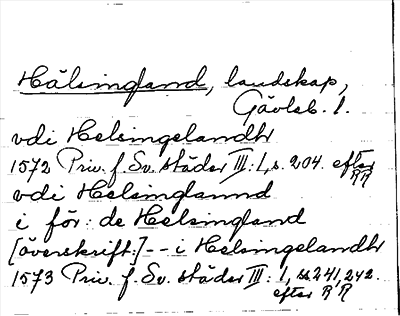 Hälsingland, landskap,
Gävleb. l.
vdi Helsingelandh
1572 Priv. f. Sv. städer III: 1, s. 204. efter
RR
vdi Helsinglannd
i för: de Helsingland
[överskrift:] -- i Helsingelandh
1573 Priv. f. Sv. städer III: 1, ss 241, 242.
efter R R